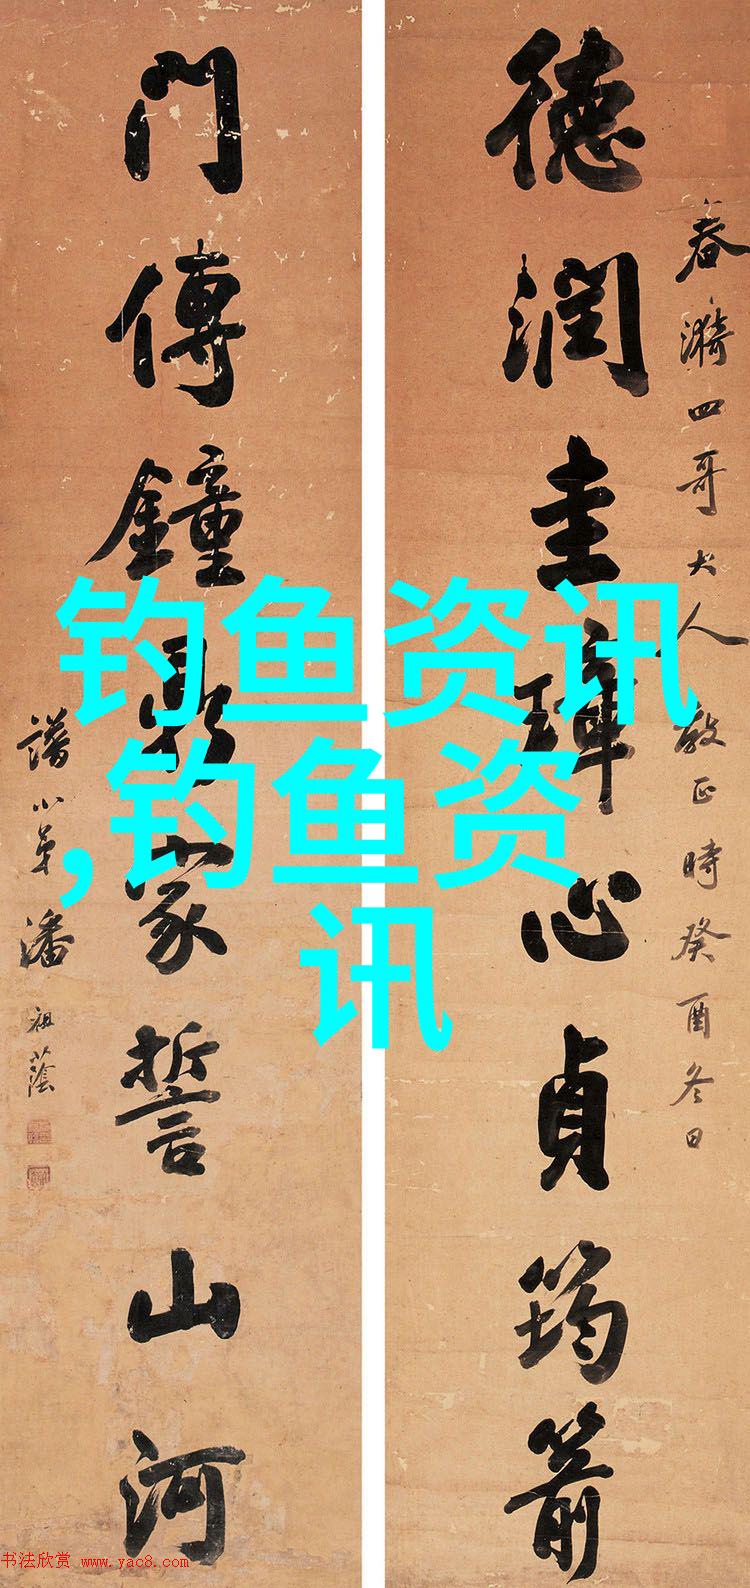 德潤圭璋心貞筠箭
春漪四哥大人教正時癸酉冬日
門傳鐘鼎家誓山河
譜小弟潘祖蔭
钓鱼资讯
,钓鱼资
讯
书法欣赏 www.yac8.com